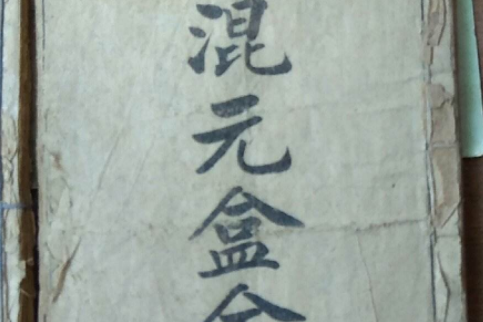 混元盒